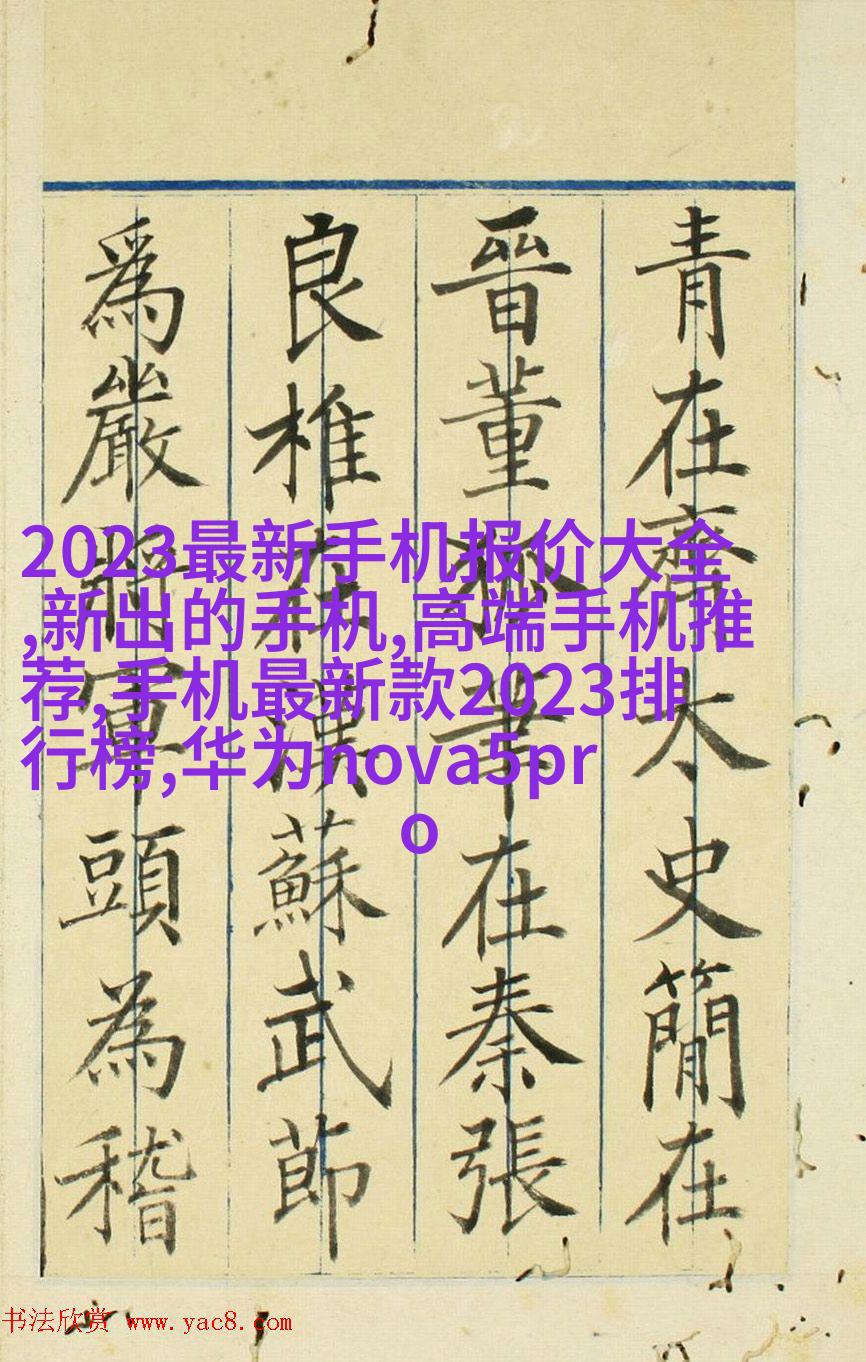 青在齊太史簡在
晉董狐筆在秦張
良椎在漢蘇武節
爲嚴將軍頭為稽
2023最新手机报价大全
,新出的手机,高端手机推
荐,手机最新款2023排
行榜,华为nova5pr
o
书法欣赏 www.yac8.com